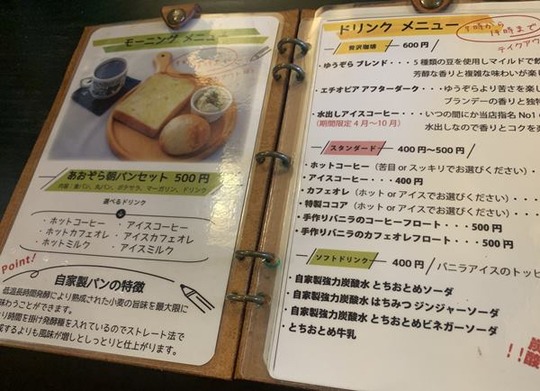 モーニング メニュー
あおぞら朝パンセット 500円
内容：食パン、丸パン、ポテサラ、マーガリン、ドリンク
選べるドリンク
・ホットコーヒー ・アイスコーヒー
・ホットカフェオレ ・アイスカフェオレ
・ホットミルク ・アイスミルク
Point!
自家製パンの特徴
低温長時間発酵により熟成された小麦の旨味を最大限に
味わうことができます。
り時間を掛け発酵種を入れているのでストレート法で
するよりも風味が増しとしっとりと仕上がります。
ドリンク メニュー
19時まで
テイクアウ
贅沢珈琲 600円
・ゆうぞらブレンド・・・5種類の豆を使用しマイルドで飲
芳醇な香りと複雑な味わいが楽し
・エチオピア アフターダーク・・・ゆうぞらより苦さを楽し
ブランデーの香りと独特
・水出しアイスコーヒー・・・いつの間にか当店指名 No1
(期間限定 4月～10月) 水出しなので香りとコクを楽
スタンダード 400円～500円
・ホットコーヒー (苦目 or スッキリでお選びください)・・・
・アイスコーヒー・・・400円
・カフェオレ (ホット or アイスでお選びください)・・・
・特製ココア (ホット or アイスでお選びください)・・・
・手作りバニラのコーヒーフロート・・・500円
・手作りバニラのカフェオレフロート・・・500円
ソフトドリンク 400円 バニラアイスのトッピ
・自家製強力炭酸水 とちおとめソーダ
・自家製強力炭酸水 はちみつ ジンジャーソーダ
・自家製強力炭酸水 とちおとめビネガーソーダ
・とちおとめ牛乳
!!